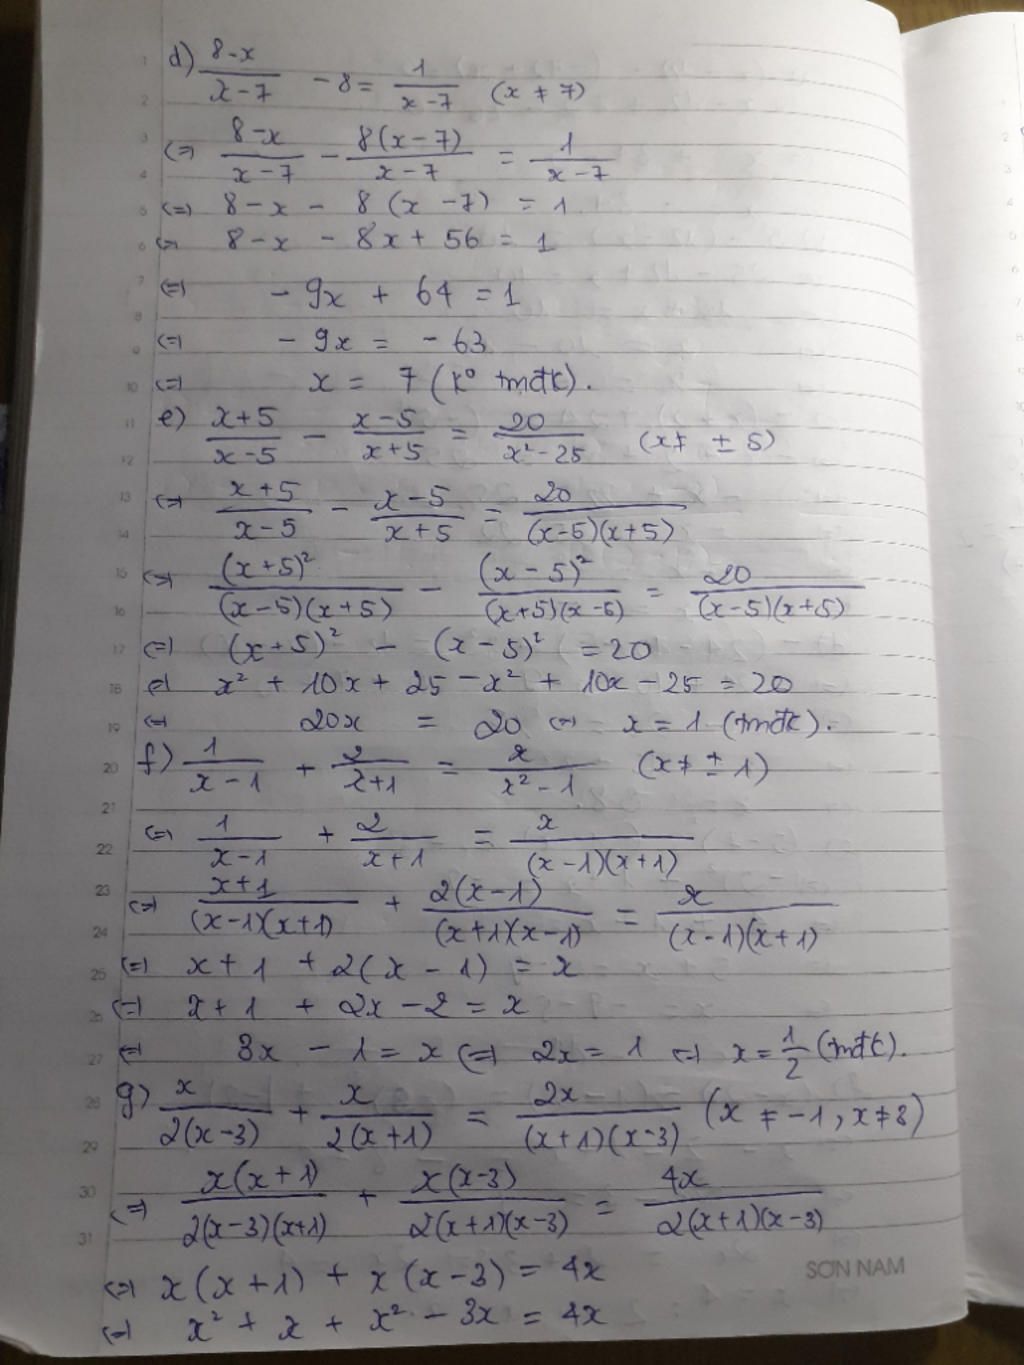 d) \frac{8-x}{x-7} - 8 = \frac{1}{x-7} (x ≠ 7)
<=> \frac{8-x}{x-7} - \frac{8(x-7)}{x-7} = \frac{1}{x-7}
<=> 8-x - 8(x-7) = 1
<=> 8-x - 8x + 56 = 1
<=> -9x + 64 = 1
<=> -9x = -63
<=> x = 7 (k° tmđk).
e) \frac{x+5}{x-5} - \frac{x-5}{x+5} = \frac{20}{x²-25} (x ≠ ±5)
<=> \frac{x+5}{x-5} - \frac{x-5}{x+5} = \frac{20}{(x-5)(x+5)}
<=> \frac{(x+5)²}{(x-5)(x+5)} - \frac{(x-5)²}{(x+5)(x-5)} = \frac{20}{(x-5)(x+5)}
<=> (x+5)² - (x-5)² = 20
<=> x² + 10x + 25 - x² + 10x - 25 = 20
<=> 20x = 20 <=> x = 1 (tmđk).
f) \frac{1}{x-1} + \frac{2}{x+1} = \frac{x}{x²-1} (x ≠ ±1)
<=> \frac{1}{x-1} + \frac{2}{x+1} = \frac{x}{(x-1)(x+1)}
<=> \frac{x+1}{(x-1)(x+1)} + \frac{2(x-1)}{(x+1)(x-1)} = \frac{x}{(x-1)(x+1)}
<=> x+1 + 2(x-1) = x
<=> x+1 + 2x-2 = x
<=> 3x - 1 = x <=> 2x = 1 <=> x = \frac{1}{2} (tmđk).
g) \frac{x}{2(x-3)} + \frac{x}{2(x+1)} = \frac{2x}{(x+1)(x-3)} (x ≠ -1, x ≠ 3)
<=> \frac{x(x+1)}{2(x-3)(x+1)} + \frac{x(x-3)}{2(x+1)(x-3)} = \frac{4x}{2(x+1)(x-3)}
SƠN NAM
<=> x(x+1) + x(x-3) = 4x
<=> x² + x + x² - 3x = 4x